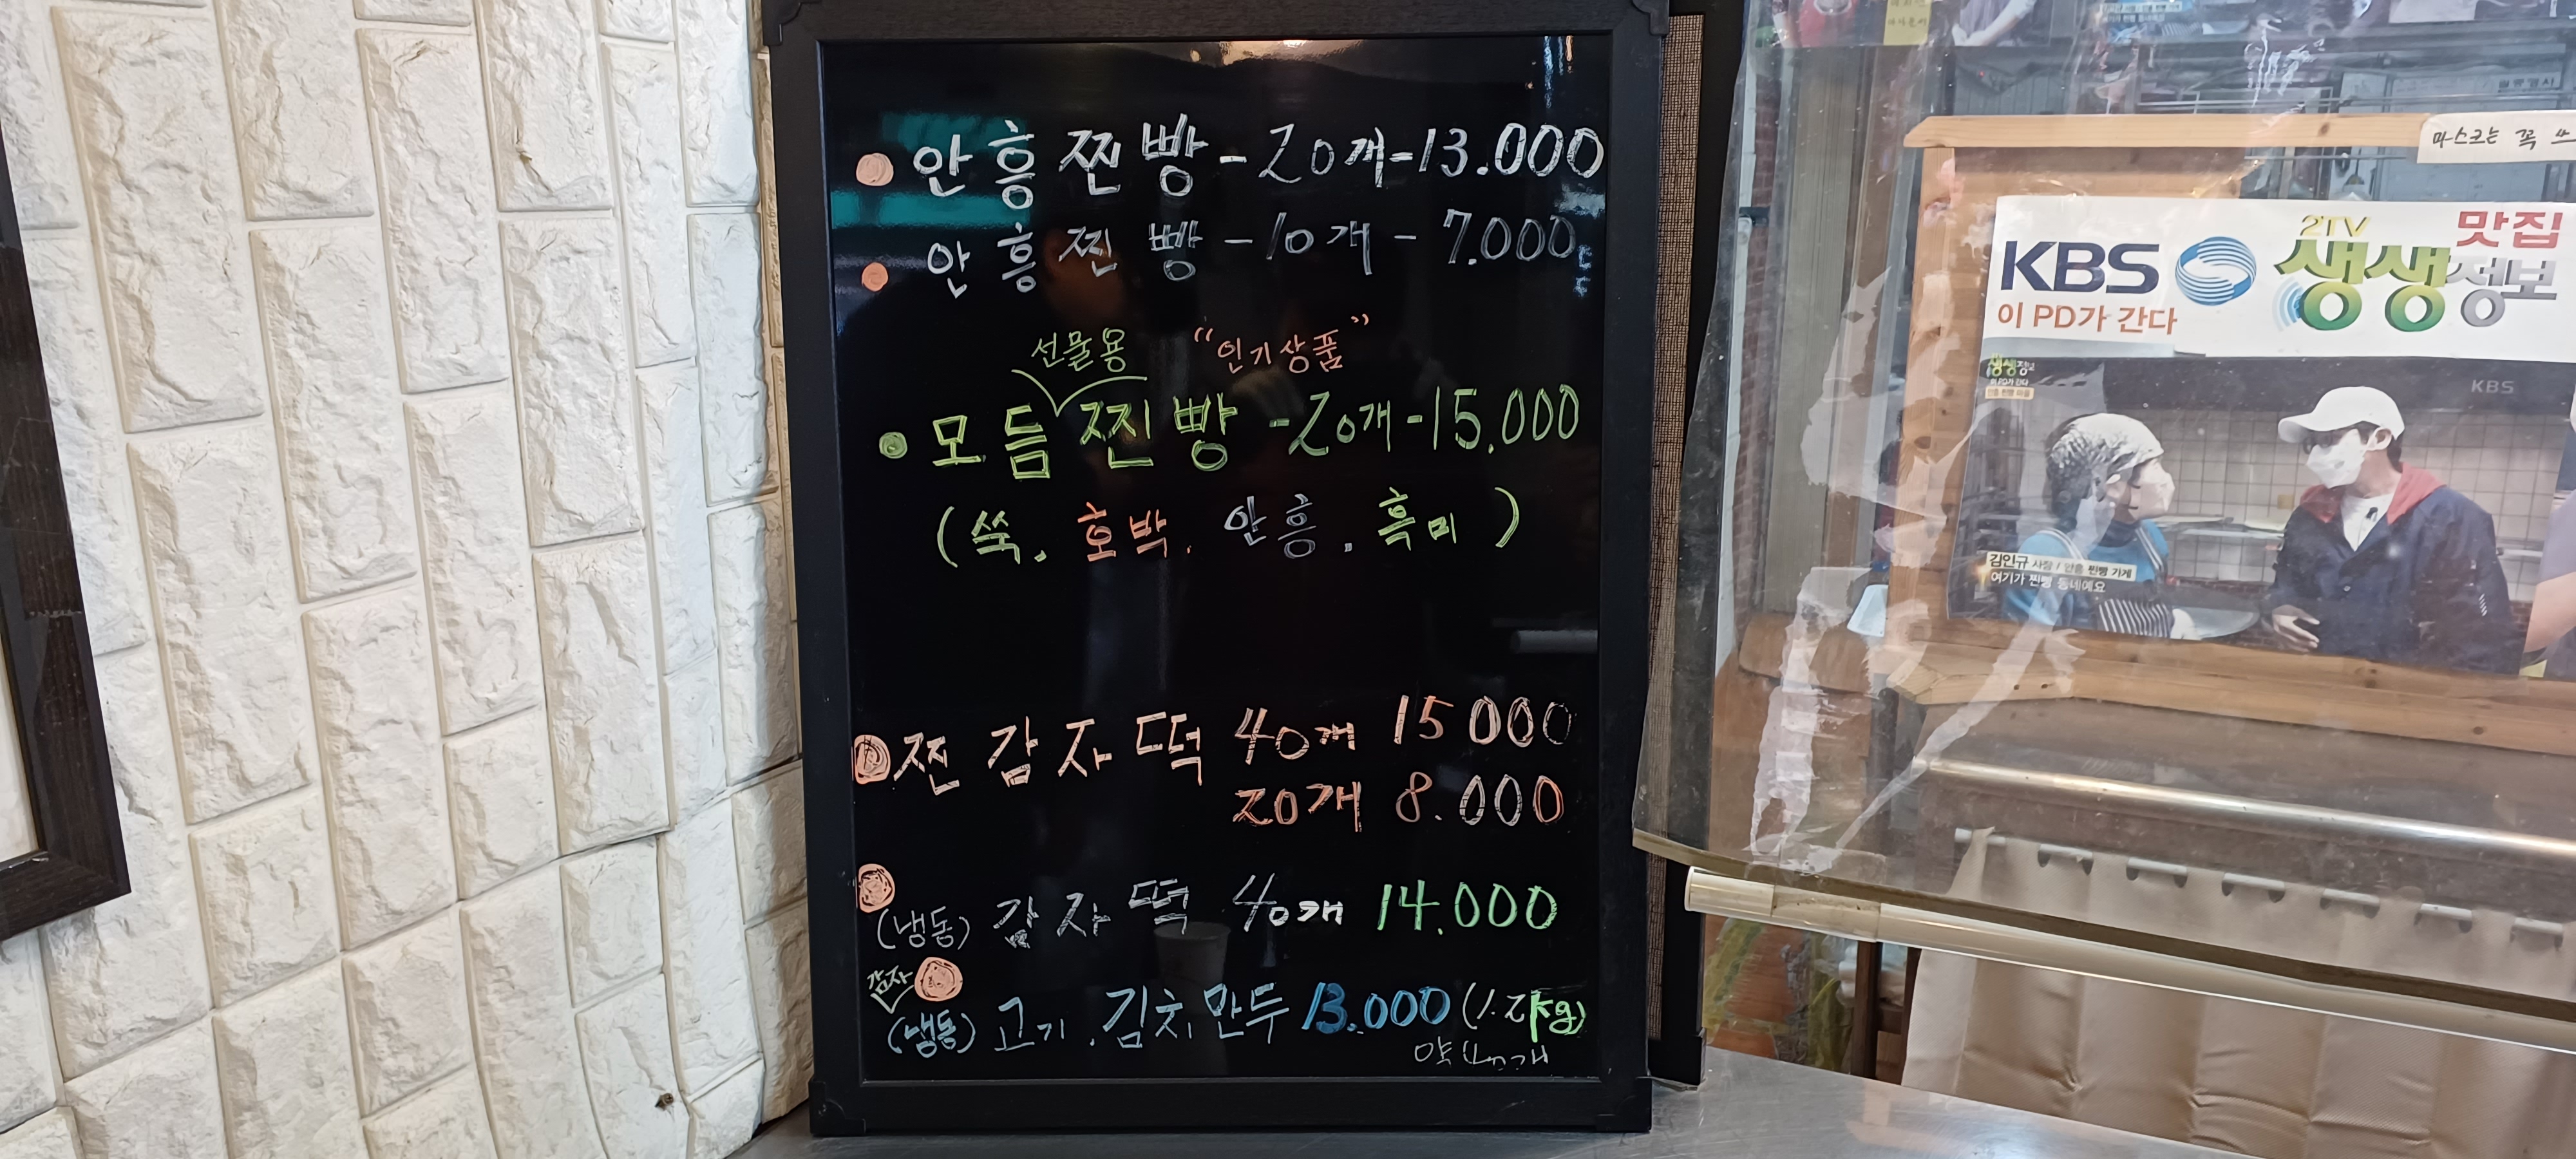 안흥찐빵-20개-13.000
안흥찐빵-10개-7.000
선물용 "인기상품"
모듬찐빵-20개-15.000
(쑥. 호박. 안흥. 흑미)
찐감자떡 40개 15000
20개 8.000
(냉동) 감자떡 40개 14.000
감자
(냉동) 고기.김치만두 13.000 (1.2kg)
약40개
마스크는 꼭 쓰
KBS 2TV 생생정보
맛집
이 PD가 간다
생생정보
이 PD가 간다
KBS
김인규 사장 / 안흥 찐빵 가게
여기가 찐빵 동네예요